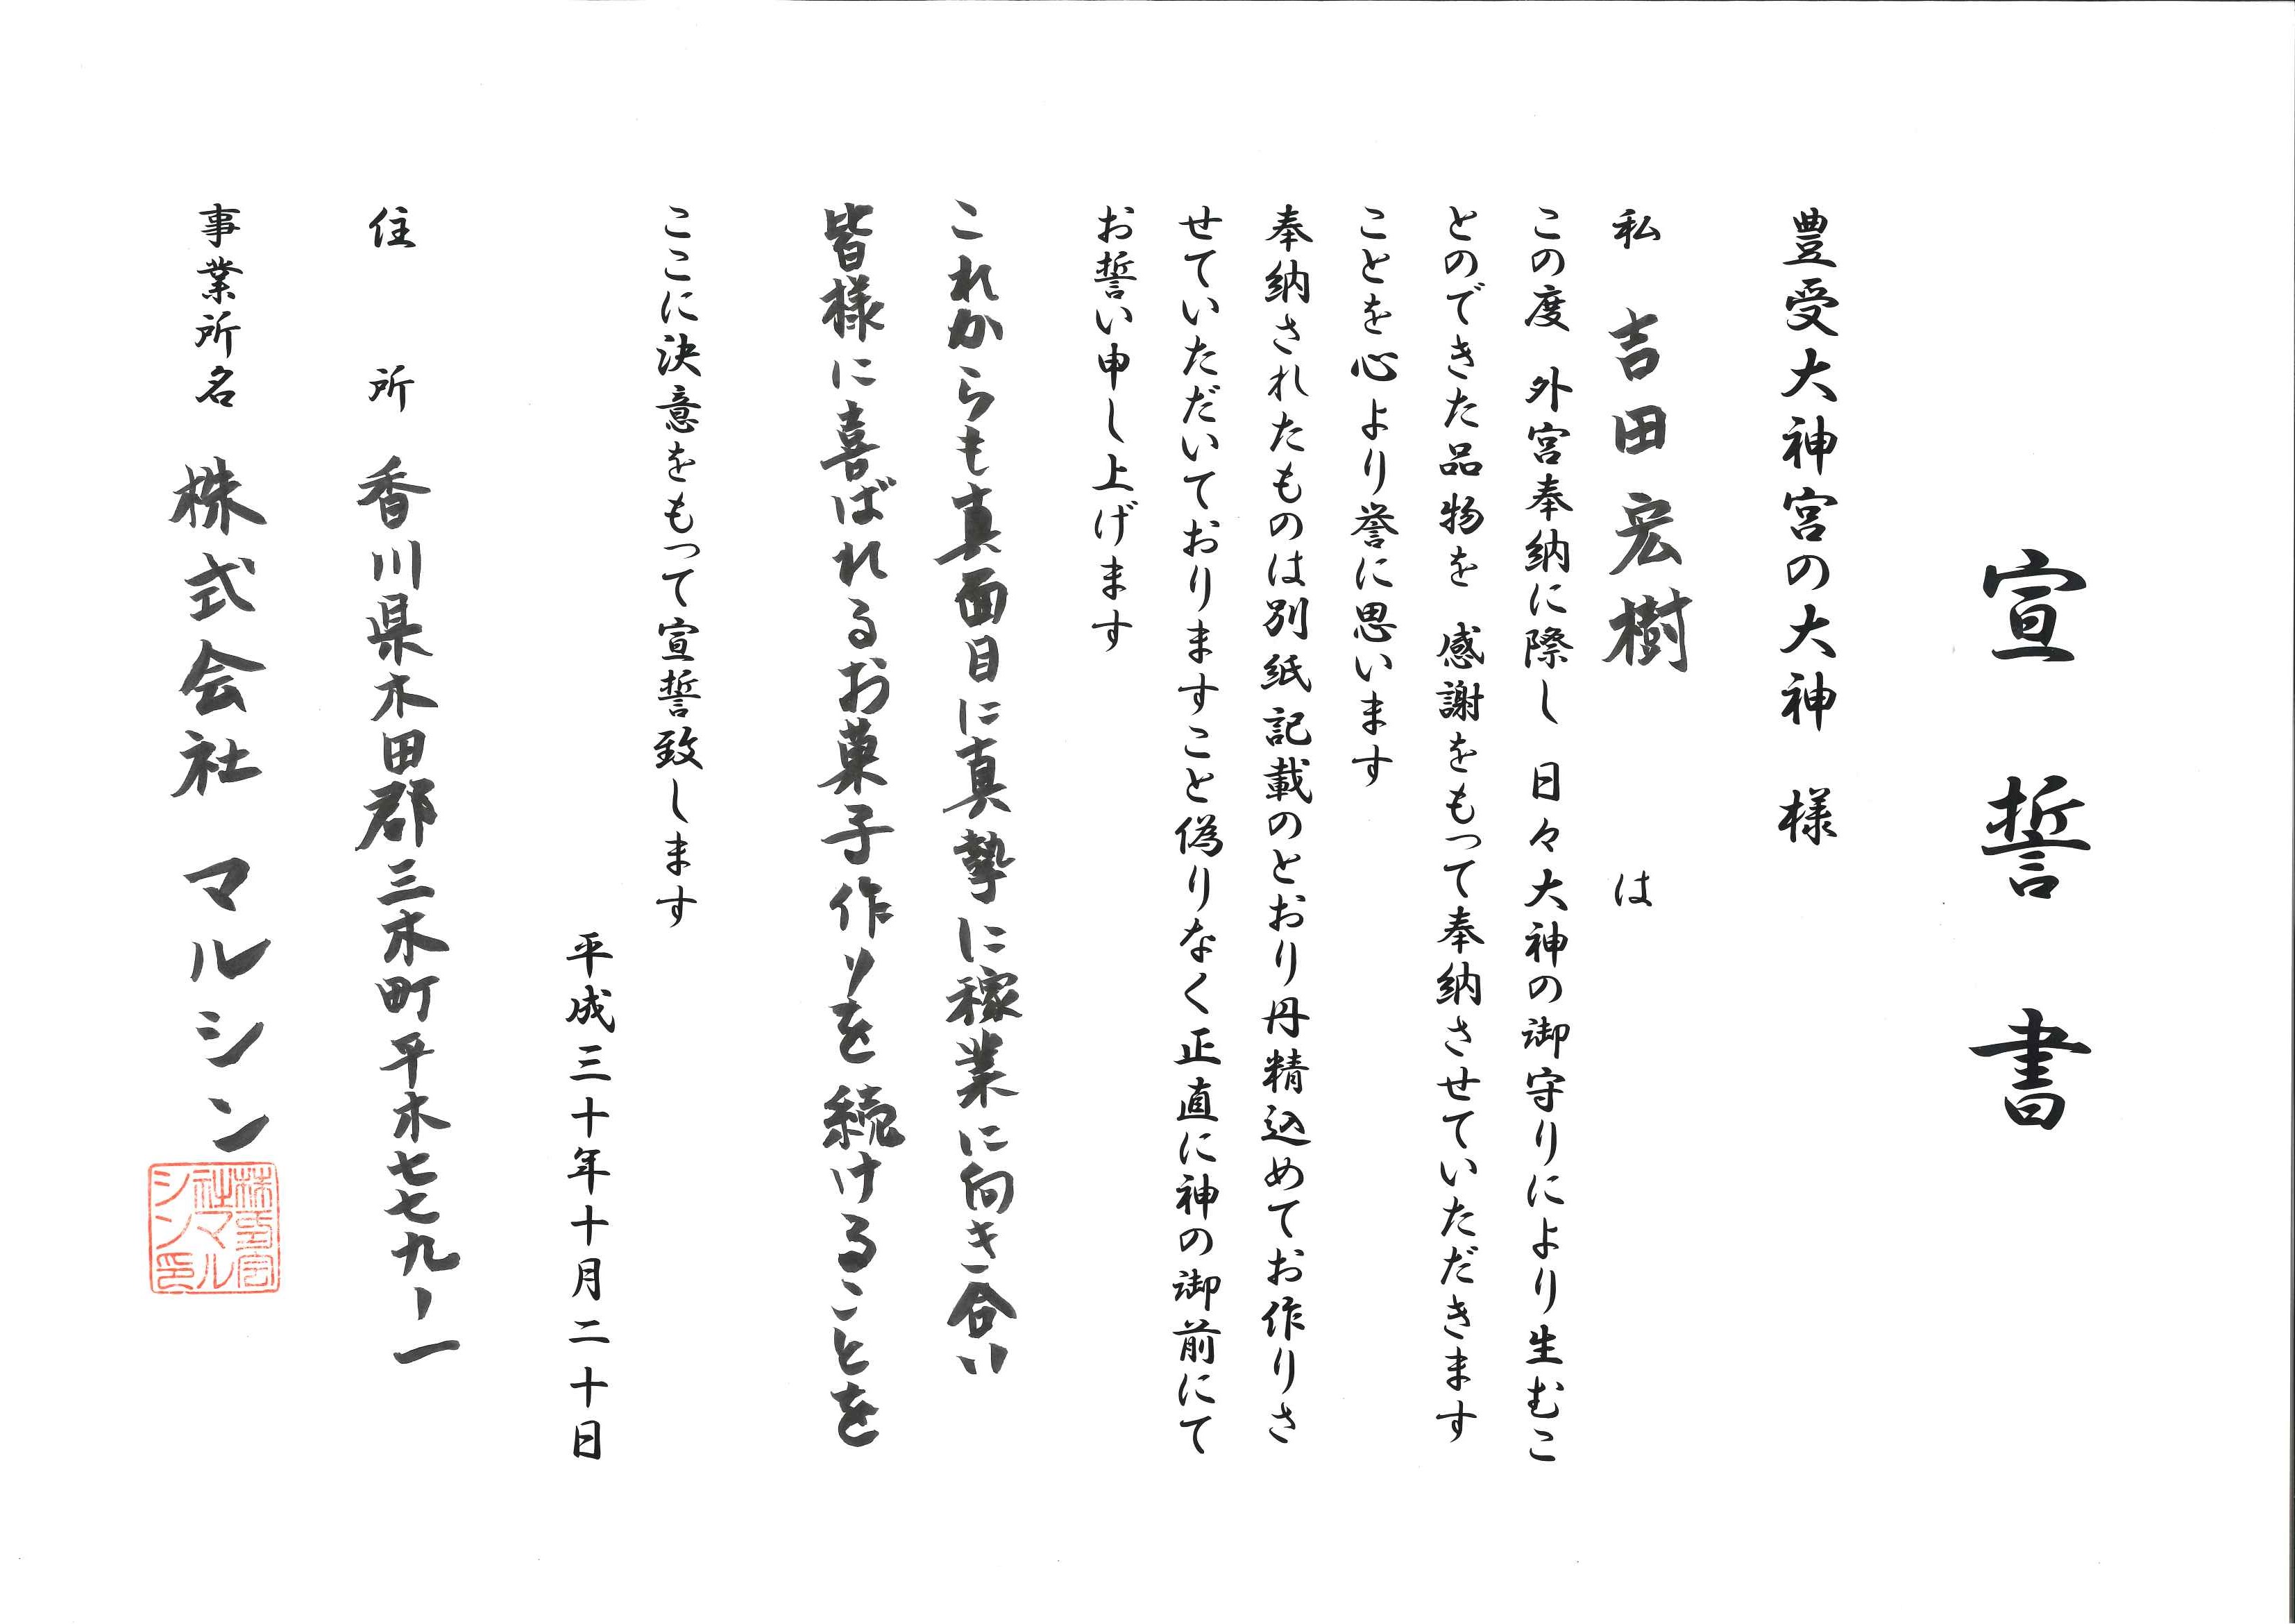 宣誓書
豊受大神宮の大神　様
私　吉田宏樹　は
この度　外宮奉納に際し　日々大神の御守りにより生むこ
とのできた品物を　感謝をもって奉納させていただきます
ことを心より誉に思います
奉納されたものは別紙記載のとおり丹精込めてお作りさ
せていただいておりますこと偽りなく正直に神の御前にて
お誓い申し上げます
これからも真面目に真摯に稼業に向き合い
皆様に喜ばれるお菓子作りを続けることを
ここに決意をもって宣誓致します
平成三十年十月二十日
住　所　香川県木田郡三木町平木七七九ー一
事業所名　株式会社　マルシン
株式会
社マル
シン印